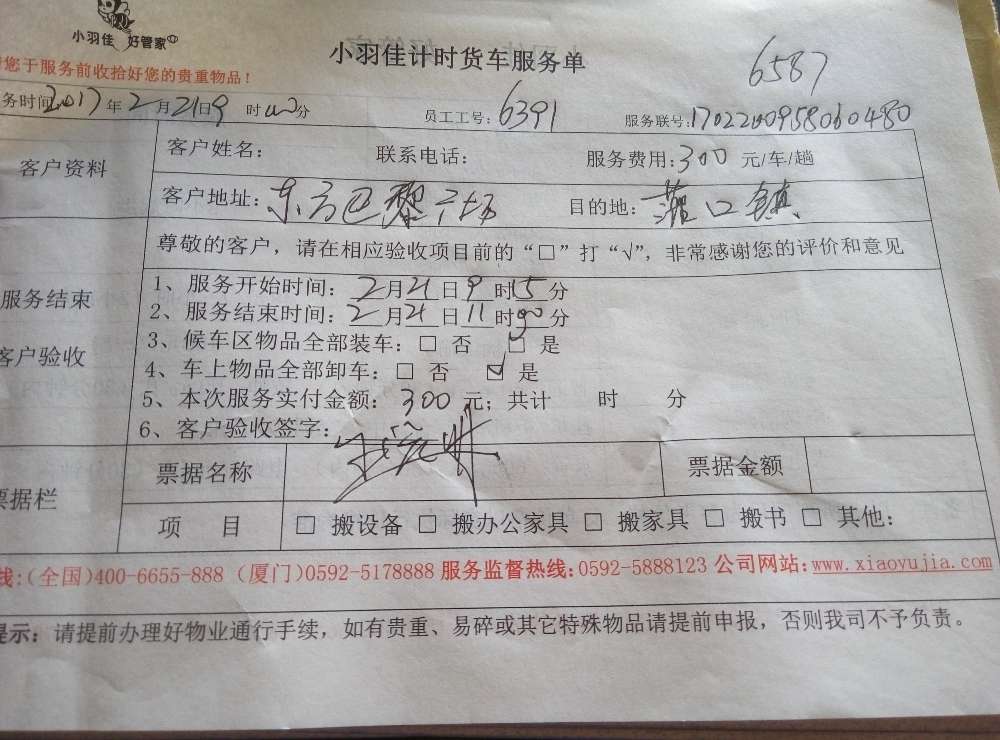 小羽佳 好管家
小羽佳计时货车服务单
6587
您于服务前收拾好您的贵重物品！
务时间2017年2月21日9时00分 员工工号：6391 服务联号：
客户资料
客户姓名： 联系电话： 服务费用：300元/车/趟
客户地址：东方巴黎广场 目的地：灌口镇
服务结束
客户验收
尊敬的客户，请在相应验收项目前的“□”打“√”，非常感谢您的评价和意见
1、服务开始时间：2月21日9时15分
2、服务结束时间：2月21日11时00分
3、候车区物品全部装车：□ 否 ☑ 是
4、车上物品全部卸车：□ 否 ☑ 是
5、本次服务实付金额：300元；共计 时 分
6、客户验收签字：
票据栏
票据名称 票据金额
项 目 □ 搬设备 □ 搬办公家具 □ 搬家具 □ 搬书 □ 其他：
线：(全国)400-6655-888 (厦门)0592-5178888 服务监督热线：0592-5888123 公司网站：www.xiaoyujia.com
提示：请提前办理好物业通行手续，如有贵重、易碎或其它特殊物品请提前申报，否则我司不予负责。